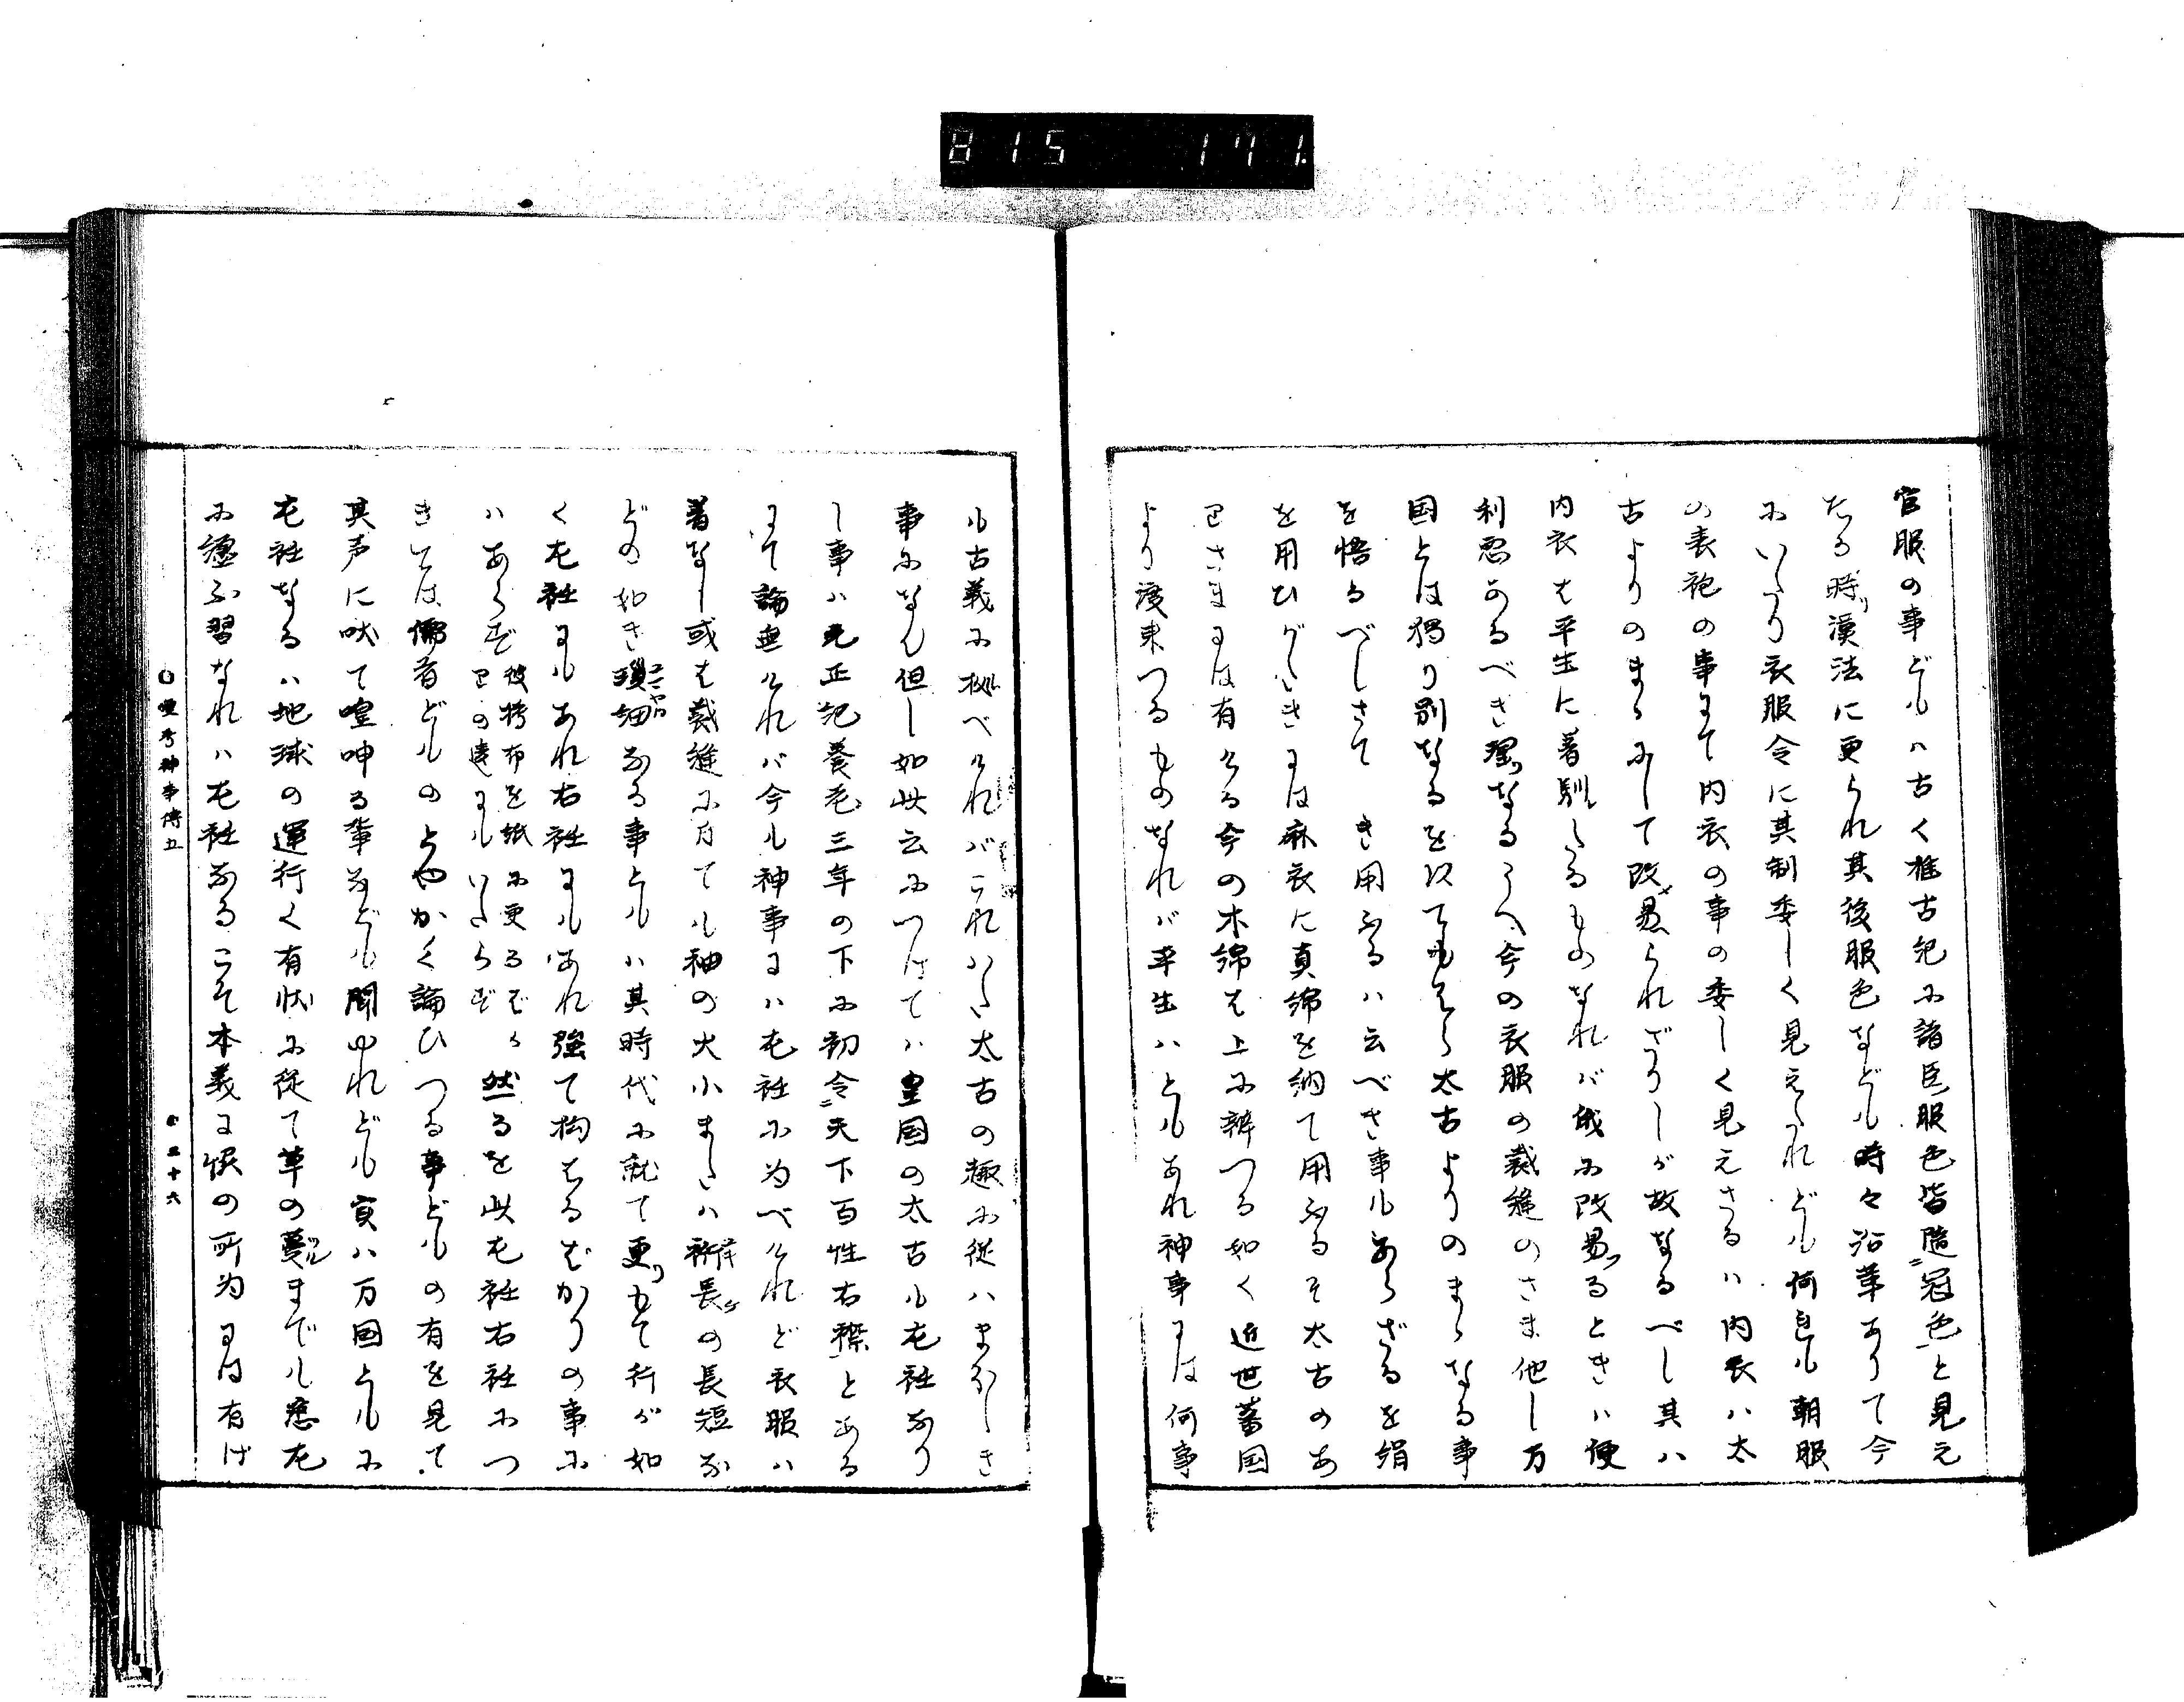 815 171.
官服の事どもハ古く推古紀に諸臣服色皆隨冠色と見え
たる時漢法に更られ其後服色なども時々沿革ありて今
にいたり衣服令に其制委しく見えたれども何レも朝服
の表袍の事にて内衣の事の委しく見えさるハ内衣ハ太
古よりのまゝにして改易られざりしが故なるべし其ハ
内衣は平生に着馴たるものなれバ俄に改易るときハ便
利悪かるべき理なるうへ今の衣服の裁縫のさま他し万
国とは独り別なるを以ても太古よりのまゝなる事
を悟るべしさて き用ふるハ云べき事もあらざるを絹
を用ひがたきには麻衣に真綿を納て用ふるそ太古のあ
りさまには有ける今の木綿は上に辨つる如く近世蕃国
より渡来つるものなれバ平生ハともあれ神事には何事
も古義に拠べけれバこれハた太古の趣に従ハまほしき
事になん但し如此云につけてハ皇国の太古も左衽なり
し事ハ元正紀養老三年の下に初令天下百姓右襟とある
にて論無けれバ今も神事にハ左衽に為べけれど衣服ハ
着なし或は裁縫に因ても袖の大小またハ裄長の長短な
どの如き瑣細なる事どもハ其時代に就て更りもて行が如
く左衽にもあれ右衽にもあれ強て拘はるばかりの事に
ハあらず
彼栲布を紙に更るばゝ
りの違にもいたらず
然るを此左衽右衽につ
きては儒者どものとやかく論ひつる事どもの有を見て
其声に吠て喧呻る輩なども聞ゆれども実ハ万国ともに
左衽なるハ地球の運行く有状に従て草の蔓までも悉左
に纏ふ習なれハ左衽なるこそ本義に候の所為には有け
神事傳五
三十六